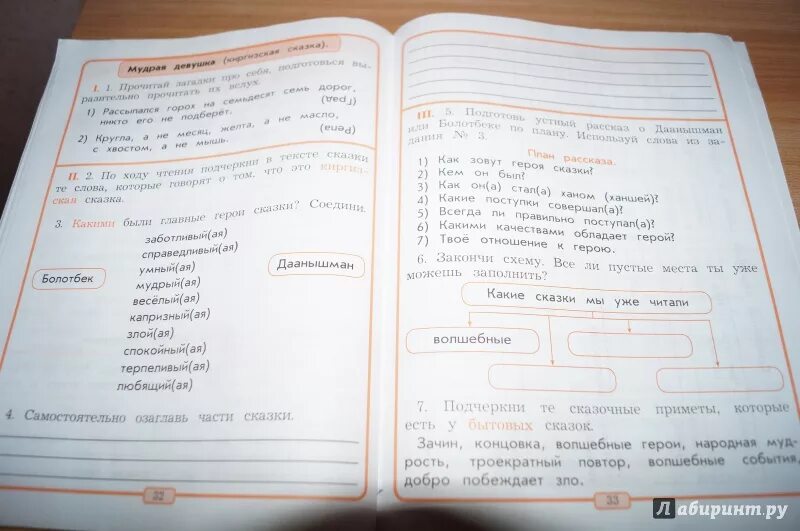 Мудрая девушка (киргизская сказка).
I. 1. Прочитай загадки про себя, подготовься вы-
разительно прочитать их вслух.
1) Рассыпался горох на семьдесят семь дорог,
никто его не подберёт. (град)
2) Кругла, а не месяц, желта, а не масло,
с хвостом, а не мышь. (репа)
II. 2. По ходу чтения подчеркни в тексте сказки
те слова, которые говорят о том, что это киргиз-
ская сказка.
3. Какими были главные герои сказки? Соедини.
заботливый(ая)
справедливый(ая)
умный(ая)
Болотбек
мудрый(ая)
Даанышман
весёлый(ая)
капризный(ая)
злой(ая)
спокойный(ая)
терпеливый(ая)
любящий(ая)
4. Самостоятельно озаглавь части сказки.
32
III. 5. Подготовь устный рассказ о Даанышман
или Болотбеке по плану. Используй слова из за-
дания № 3.
План рассказа.
1) Как зовут героя сказки?
2) Кем он был?
3) Как он(а) стал(а) ханом (ханшей)?
4) Какие поступки совершал(а)?
5) Всегда ли правильно поступал(а)?
6) Какими качествами обладает герой?
7) Твоё отношение к герою.
6. Закончи схему. Все ли пустые места ты уже
можешь заполнить?
Какие сказки мы уже читали
волшебные
7. Подчеркни те сказочные приметы, которые
есть у бытовых сказок.
Зачин, концовка, волшебные герои, народная муд-
рость, троекратный повтор, волшебные события,
добро побеждает зло.
33
Лабиринт.ру